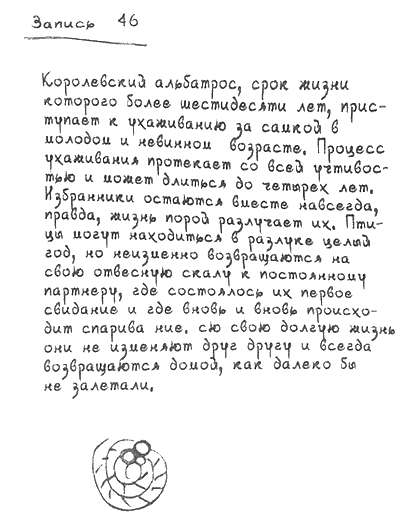 Запись 46
Королевский альбатрос, срок жизни
которого более шестидесяти лет, прис-
тупает к ухаживанию за самкой в
молодом и невинном возрасте. Процесс
ухаживания протекает со всей учтивос-
тью и может длиться до четырех лет.
Избранники остаются вместе навсегда,
правда, жизнь порой разлучает их. Пти-
цы могут находиться в разлуке целый
год, но неизменно возвращаются на
свою отвесную скалу к постоянному
партнеру, где состоялось их первое
свидание и где вновь и вновь происхо-
дит спарива ние. сю свою долгую жизнь
они не изменяют друг другу и всегда
возвращаются домой, как далеко бы
не залетали.